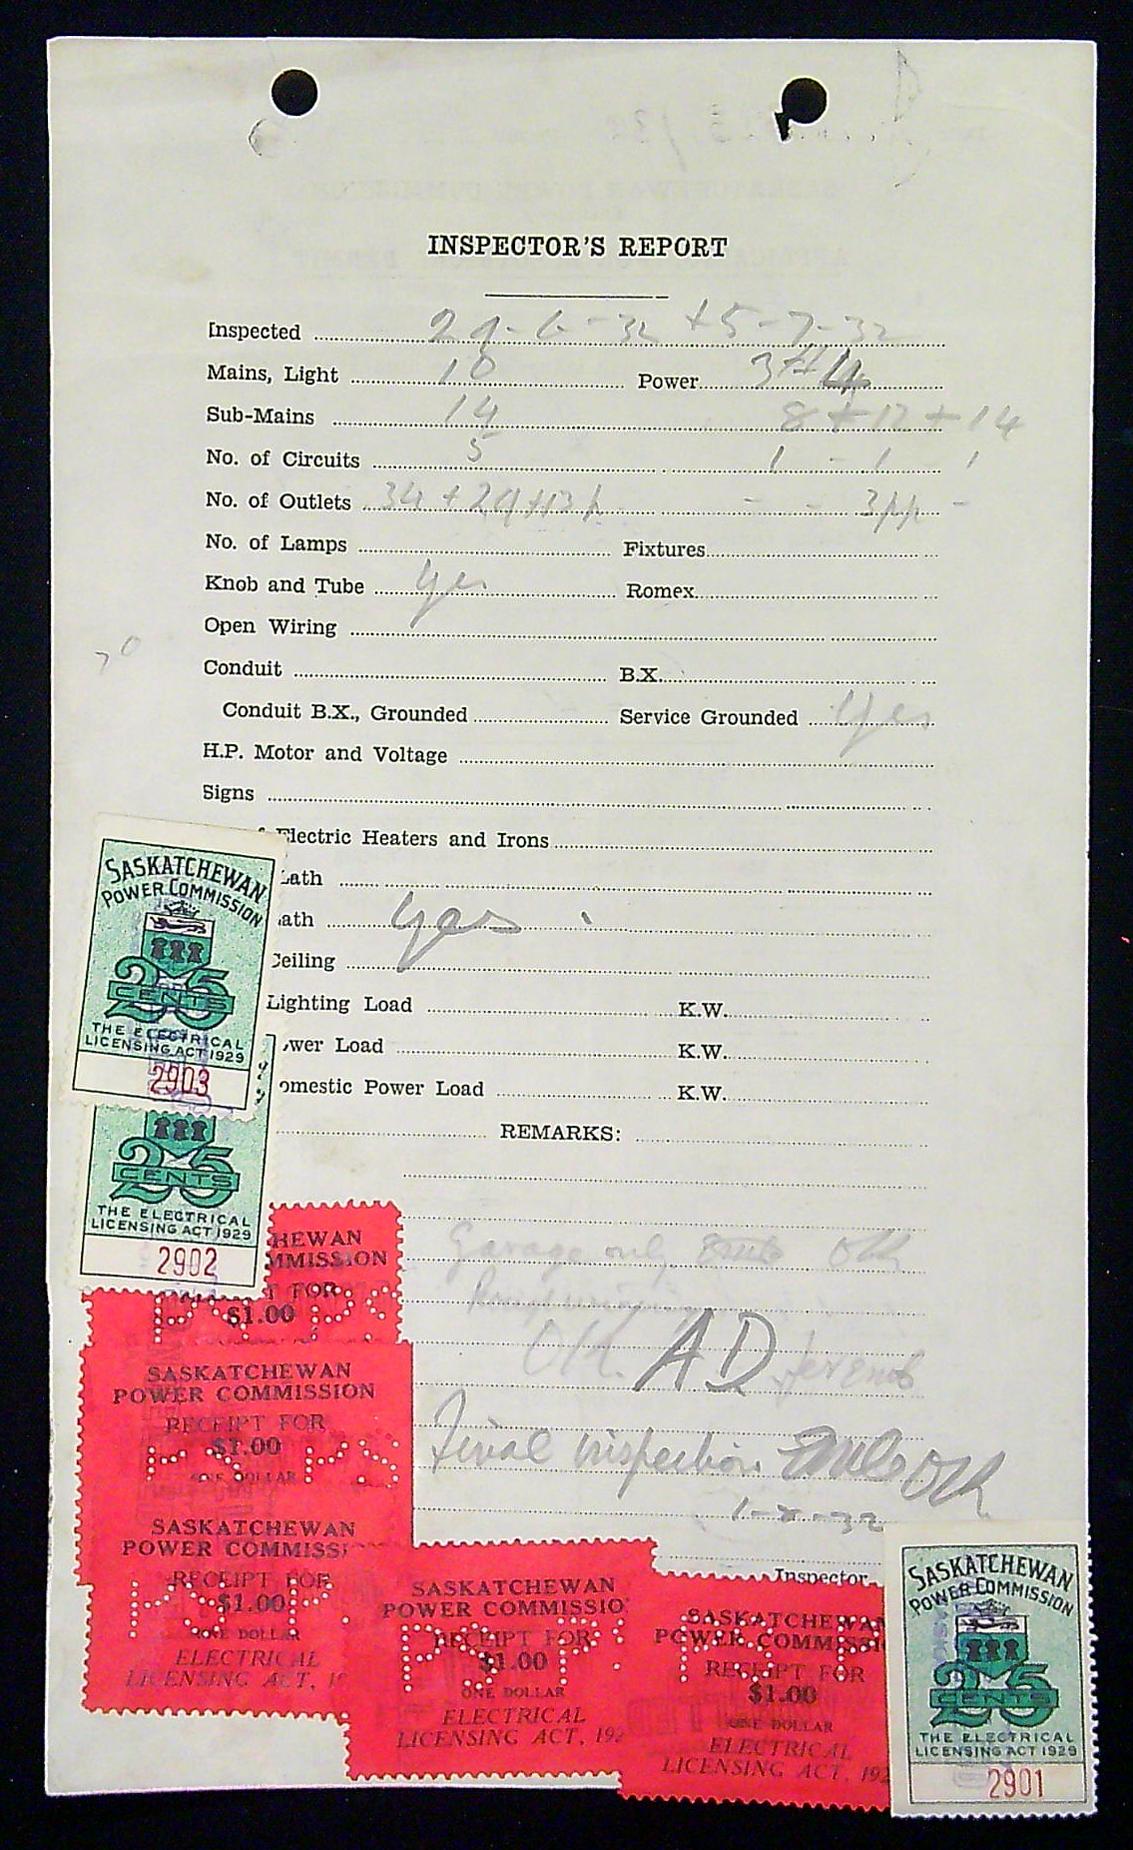 INSPECTOR'S REPORT
Inspected 29-6-32 + 5-7-32
Mains, Light 10 Power 3#4
Sub-Mains 14 8 + 12 + 14
No. of Circuits 5 1 - 1 1
No. of Outlets 34 + 29 + 13 p - - 3pp -
No. of Lamps Fixtures
Knob and Tube yes Romex
Open Wiring
Conduit B.X.
Conduit B.X., Grounded Service Grounded yes
H.P. Motor and Voltage
Signs
Electric Heaters and Irons
Lath
ath yes
Ceiling
Lighting Load K.W.
wer Load K.W.
omestic Power Load K.W.
REMARKS:
Garage only OK
OK. AD
Final inspection OK
Inspector
SASKATCHEWAN
POWER COMMISSION
25
CENTS
THE ELECTRICAL
LICENSING ACT 1929
2903
25
CENTS
THE ELECTRICAL
LICENSING ACT 1929
2902
HEWAN
MMISSION
T FOR
$1.00
SASKATCHEWAN
POWER COMMISSION
RECEIPT FOR
$1.00
ONE DOLLAR
SASKATCHEWAN
POWER COMMISSI
RECEIPT FOR
$1.00
ONE DOLLAR
ELECTRICAL
LICENSING ACT, 1
SASKATCHEWAN
POWER COMMISSIO
RECEIPT FOR
$1.00
ONE DOLLAR
ELECTRICAL
LICENSING ACT, 192
SASKATCHEWAN
POWER COMMISSI
RECEIPT FOR
$1.00
ONE DOLLAR
ELECTRICAL
LICENSING ACT, 192
SASKATCHEWAN
POWER COMMISSION
25
CENTS
THE ELECTRICAL
LICENSING ACT 1929
2901